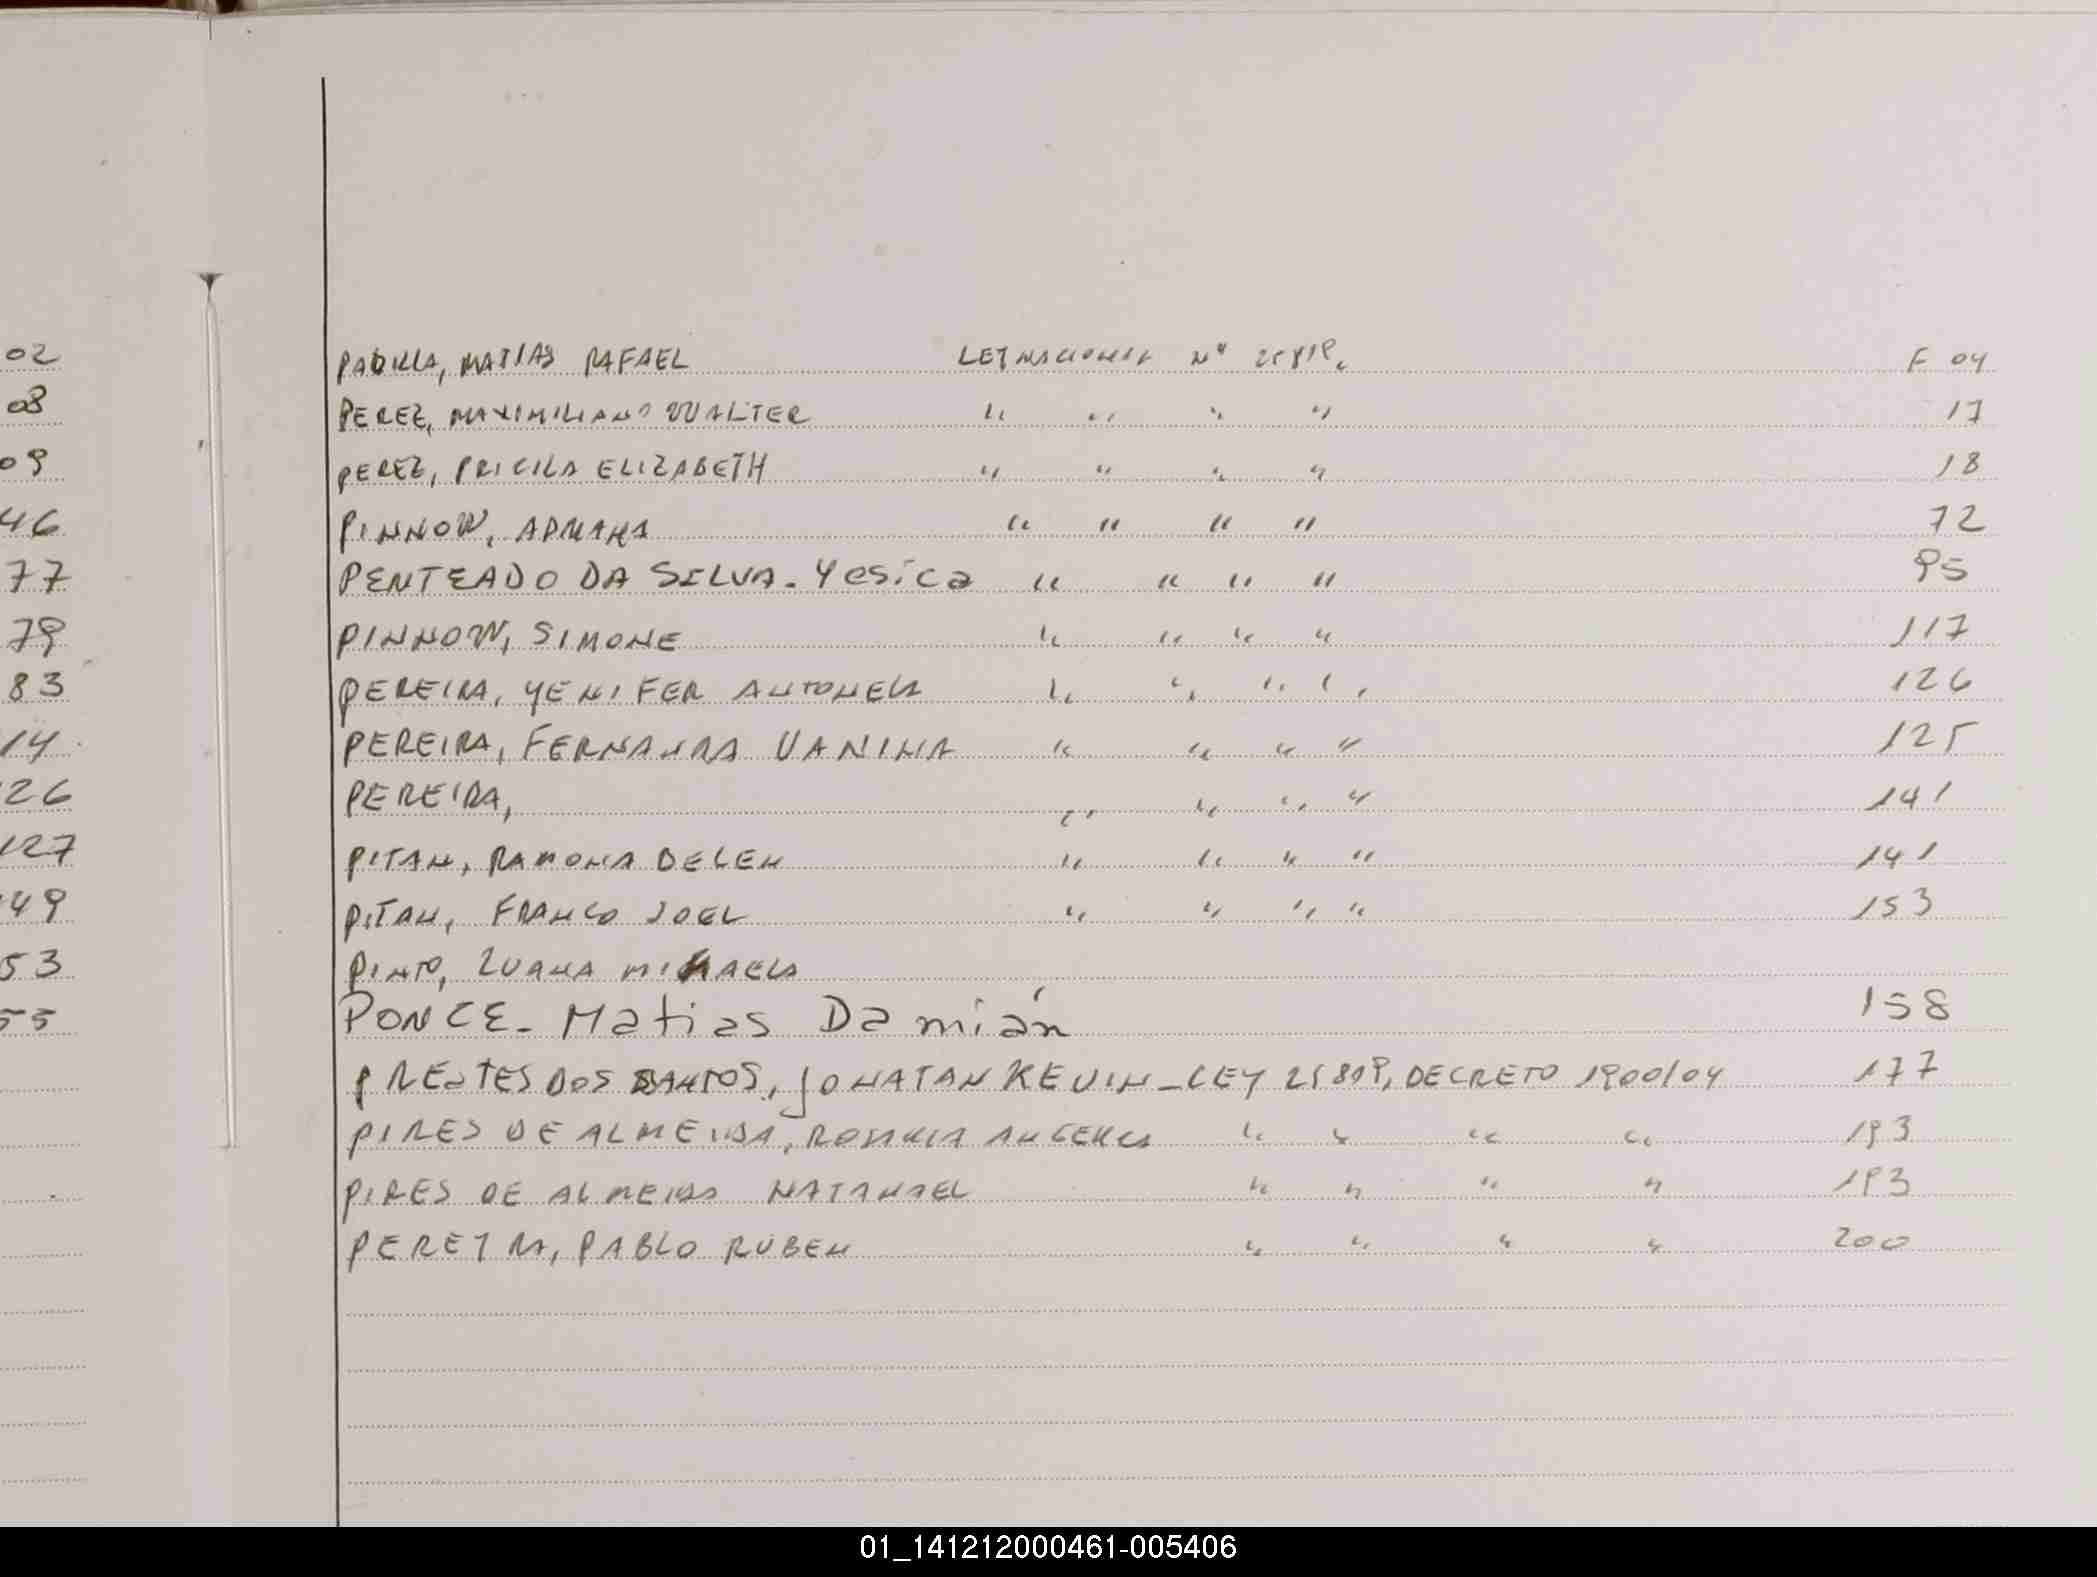 02
08
09
46
77
79
83
14
26
127
49
53
55
PADILLA, MATIAS RAFAEL LEY NACIONAL Nº 25819. F 04
PEREZ, MAXIMILIANO WALTER " " " " 17
PEREZ, PRICILA ELIZABETH " " " " 18
PINNOW, ADRIANA " " " " 72
PENTEADO DA SILVA. Yesica " " " " 95
PINNOW, SIMONE " " " " 117
PEREIRA, YENIFER ANTONELA " " " " 126
PEREIRA, FERNANDA VANINA " " " " 125
PEREIRA, " " " " 141
PITAN, RAMONA BELEN " " " " 141
PITAN, FRANCO JOEL " " " " 153
PINTO, LUANA MICAELA
PONCE. Matias Damián 158
PRESTES DOS SANTOS, JONATAN KEVIN - LEY 25819, DECRETO 1900/04 177
PIRES DE ALMEIDA, ANGELICA " " " " 193
PIRES DE ALMEIDA NATANAEL " " " " 193
PEREYRA, PABLO RUBEN " " " " 200
01_141212000461-005406